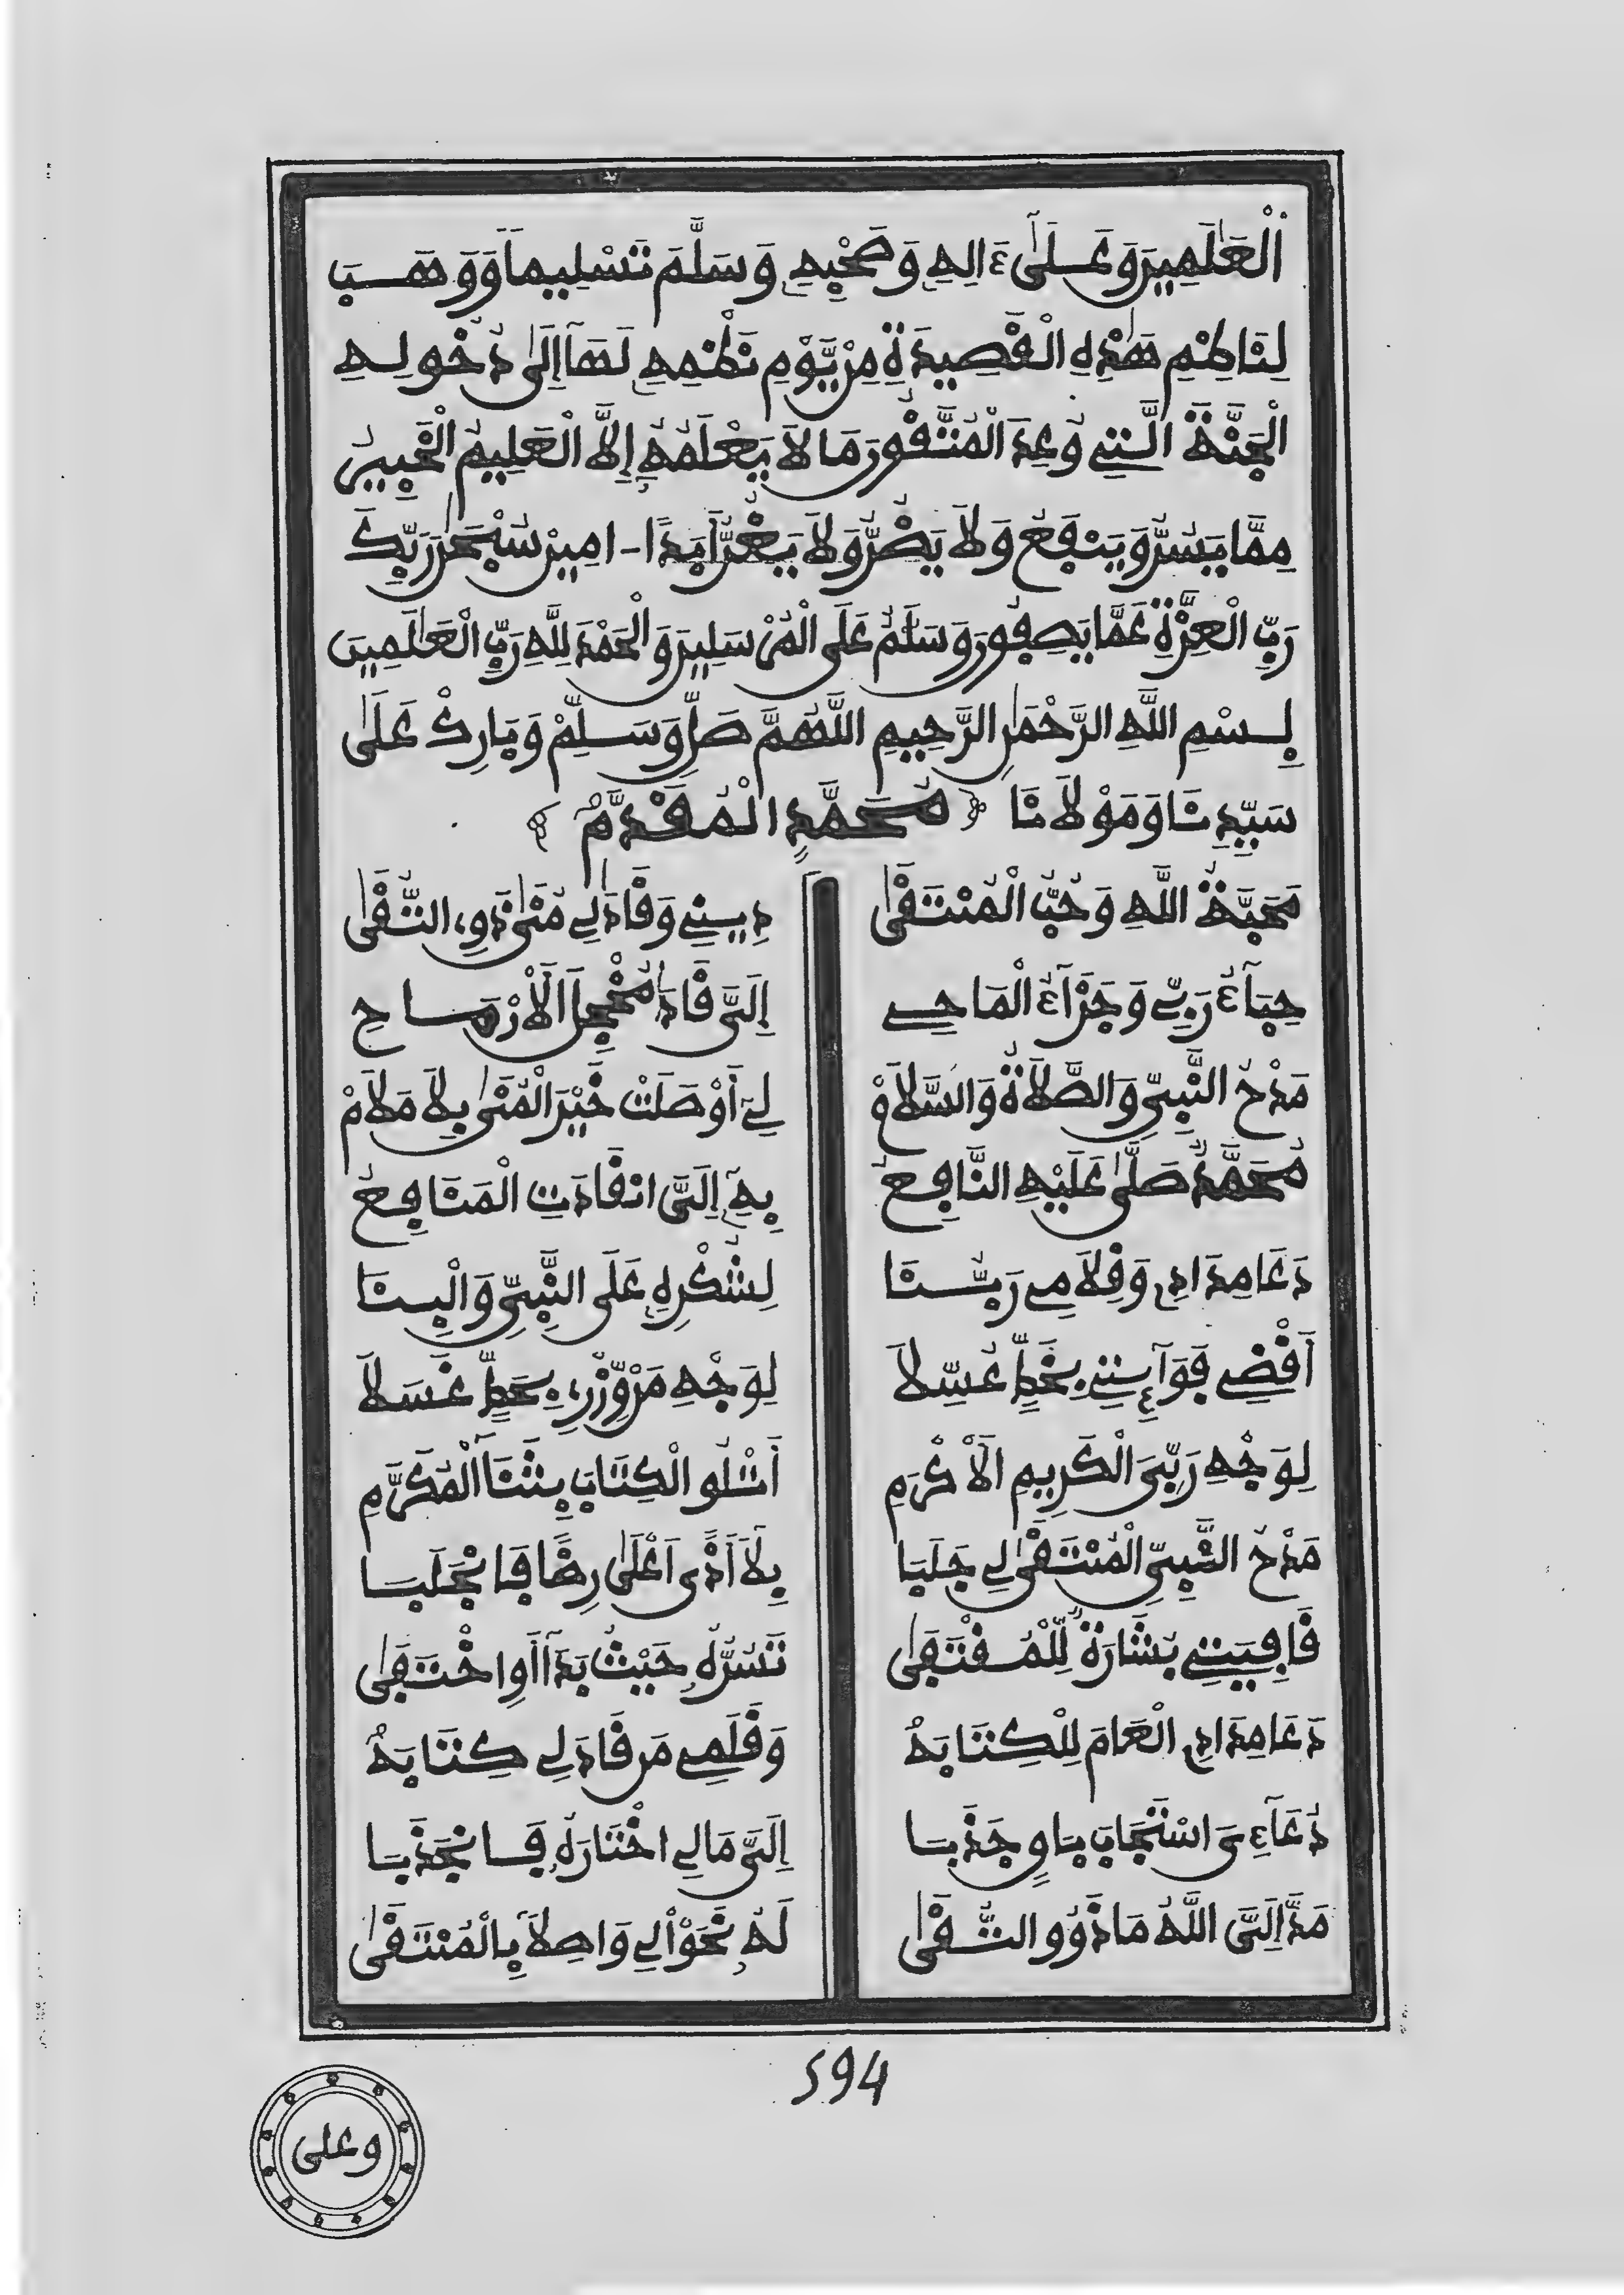 الْعَٰلَمِينَ وَعَلَىٰ ءَالِهِ وَصَحْبِهِ وَسَلَّمَ تَسْلِيمًا وَوَهَبَ
لِنَاظِمِ هَٰذِهِ الْقَصِيدَةِ مِنْ يَّوْمِ نَظْمِهِ لَهَا إِلَىٰ دُخُولِهِ
الْجَنَّةَ الَّتِي وُعِدَ الْمُتَّقُونَ مَا لَا يَعْلَمُهُ إِلَّا الْعَلِيمُ الْخَبِيرُ
مِمَّا يَسُرُّ وَيَنْفَعُ وَلَا يَضُرُّ وَلَا يَغُرُّ أَبَدًا - امِينْ سُبْحَٰنَ رَبِّكَ
رَبِّ الْعِزَّةِ عَمَّا يَصِفُونَ وَسَلَٰمٌ عَلَى الْمُرْسَلِينَ وَالْحَمْدُ لِلَّهِ رَبِّ الْعَٰلَمِينَ
بِسْمِ اللَّهِ الرَّحْمَٰنِ الرَّحِيمِ اللَّهُمَّ صَلِّ وَسَلِّمْ وَبَارِكْ عَلَىٰ
سَيِّدِنَا وَمَوْلَانَا ﴿مُحَمَّدٍ الْمُقَدَّمُ﴾
مَحَبَّةُ اللَّهِ وَحُبُّ الْمُنْتَقَىٰ دِينِي وَقَادَ لِي مُنَىٰ ذَوِي التُّقَىٰ
حِبَاءُ رَبِّي وَجَزَاءُ الْمَاحِي إِلَيَّ قَادَا مُخْجِلَ الْأَرْمَاحِ
مَدْحُ النَّبِيِّ وَالصَّلَاةُ وَالسَّلَامْ لِي أَوْصَلَتْ خَيْرَ الْمُنَىٰ بِلَا مَلَامْ
مُحَمَّدٌ صَلَّىٰ عَلَيْهِ النَّافِعُ بِهِ إِلَيَّ انْقَادَتِ الْمَنَافِعُ
دَعَا مِدَادِي وَقِلَامِي رَبُّنَا لِشُكْرِهِ عَلَى النَّبِيِّ وَالْبِنَا
أَقْضِي فَوَائِتِي بِخَطٍّ غُسِّلَا لِوَجْهِ مَنْ وِّزْرِي بِحَطٍّ غَسَلَا
لِوَجْهِ رَبِّيَ الْكَرِيمِ الْأَكْرَمِ أَتْلُو الْكِتَابَ بِثَنَا الْمُكَرَّمِ
مَدْحُ النَّبِيِّ الْمُنْتَقَىٰ لِي جَلَبَا بِلَا أَذًى أَعْلَىٰ رِضًا فَانْجَلَبَا
قَافِيَتِي بَشَارَةٌ لِّلْمُقْتَفَىٰ تَسُرُّهُ حَيْثُ بَدَا أَوِ اخْتَفَىٰ
دَعَا مِدَادِي الْعَامَ لِلْكِتَابَهْ وَقَلَمِي مَنْ قَادَ لِي كِتَابَهُ
دُعَاءِيَ اسْتَجَابَ بَاوٍ جَذَبَا إِلَيَّ مَا لِي اخْتَارَهُ فَانْجَذَبَا
مَدَّ إِلَيَّ اللَّهُ مَا ذَوُو التُّقَىٰ لَهُ نَحَوْا لِي وَاصِلًا بِالْمُنْتَقَىٰ
594
وعلى